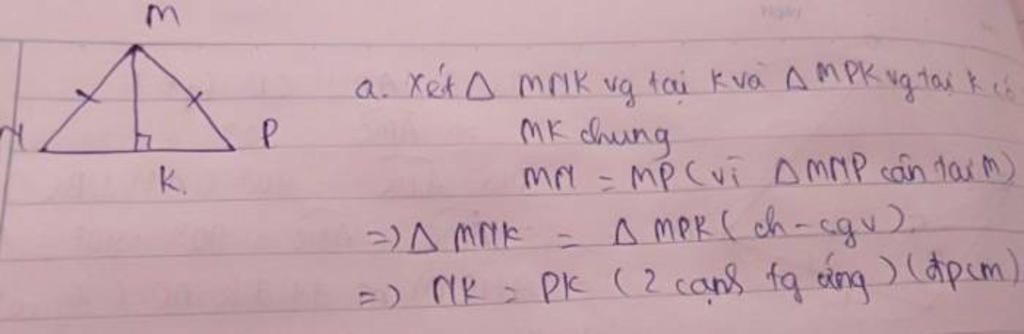 M
N
P
K.
a. Xét Δ MNK vg tại K và Δ MPK vg tại K có
MK chung
MN = MP (vì Δ MNP cân tại M)
=> Δ MNK = Δ MPK (ch - cgv).
=> NK = PK (2 cạnh tg ứng) (đpcm)